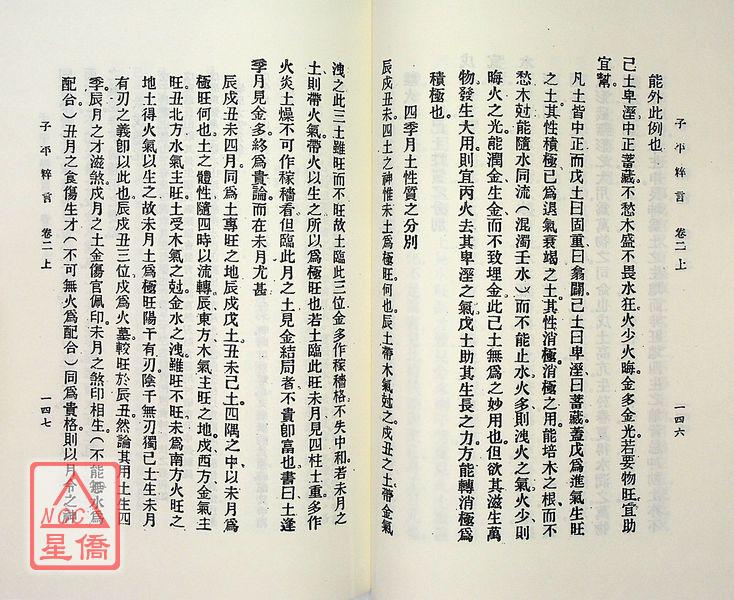 子平粹言 卷二上
一四六
能外此例也。
己土卑溼中正蓄藏不愁木盛不畏水狂火少火晦金多金光若要物旺宜助
宜幫。
凡土皆中正而戊土曰固重曰翕闢己土曰卑溼曰蓄藏蓋戊爲進氣生旺
之土其性積極己爲退氣衰竭之土其性消極消極之用能培木之根而不
愁木尅能隨水同流(混濁壬水)而不能止水火多則洩火之氣火少則
晦火之光能潤金生金而不致埋金此己土無爲之妙用也但欲其滋生萬
物發生大用則宜丙火去其卑溼之氣戊土助其生長之力方能轉消極爲
積極也。
四季月土性質之分別
辰戌丑未四土之神惟未土爲極旺何也辰土帶木氣尅之戌丑之土帶金氣
洩之此三土雖旺而不旺故土臨此三位金多作稼穡格不失中和若未月之
土則帶火氣帶火以生之所以爲極旺也若土臨此旺未月見四柱土重多作
火炎土燥不可作稼穡看但臨此月之土見金結局者不貴卽富也書曰土逢
季月見金多終爲貴論而在未月尤甚
辰戌丑未四月同爲土專旺之地辰戌戊土丑未己土四隅之中以未月爲
極旺何也土之體性隨四時以流轉辰東方木氣主旺之地戌西方金氣主
旺丑北方水氣主旺土受木氣之尅金水之洩雖旺不旺未爲南方火旺之
地土得火氣以生之故未月土爲極旺陽干有刃陰干無刃獨己土生未月
有刃之義卽以此也辰戌丑三位戌爲火墓較旺於辰丑然論其用土生四
季辰月之才滋煞戌月之土金傷官佩印未月之煞印相生(不能無水爲
配合)丑月之食傷生才(不可無火爲配合)同爲貴格則以月令之神
子平粹言 卷二上
一四七
NCC
星僑